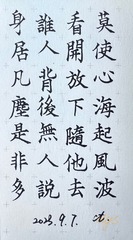 莫使心海起風波
看開放下隨他去
誰人背後無人説
身居凡塵是非多
2023.9.7.